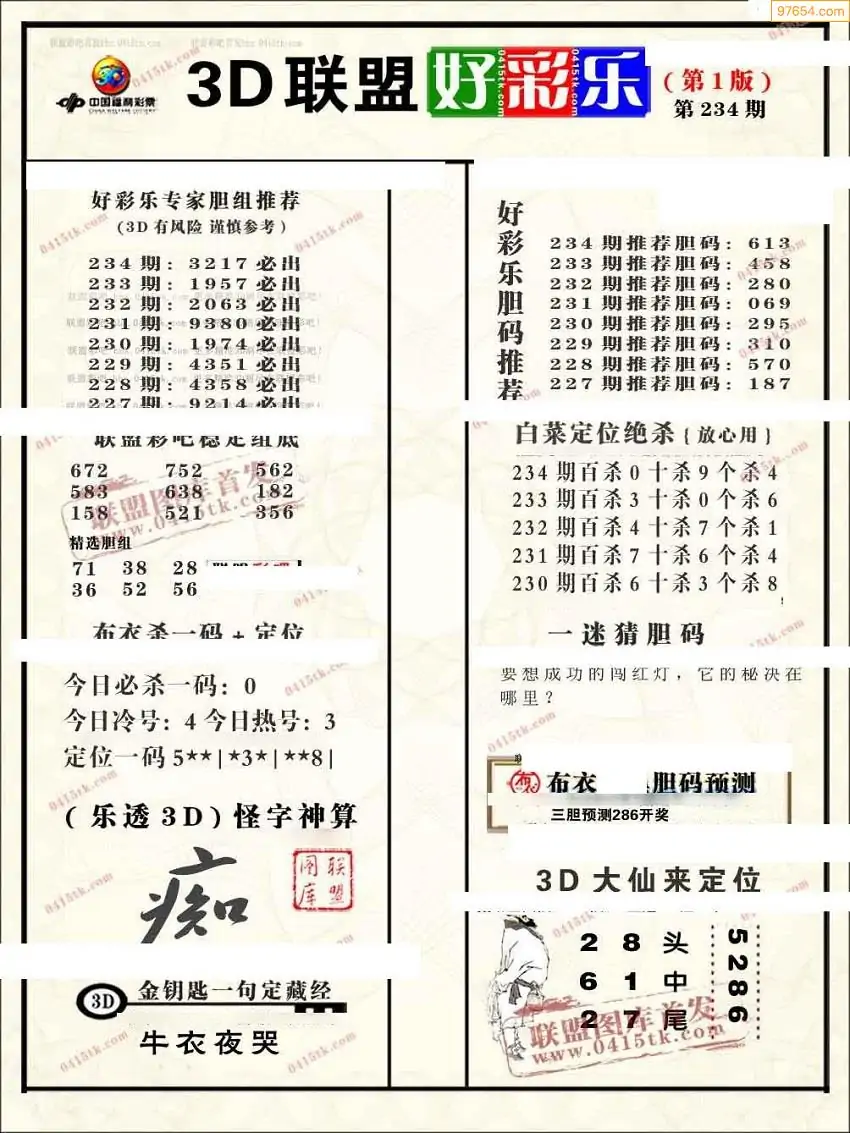 97654.com
中国福利彩票
CHINA WELFARE LOTTERY
3D联盟好彩乐
(第1版)
第234期
好彩乐专家胆组推荐
(3D有风险 谨慎参考)
234期: 3217必出
233期: 1957必出
232期: 2063必出
231期: 9380必出
230期: 1974必出
229期: 4351必出
228期: 4358必出
227期: 9214必出
联盟彩吧稳定组底
672 752 562
583 638 182
158 521 356
精选胆组
71 38 28
36 52 56
布衣杀一码+定位
今日必杀一码: 0
今日冷号: 4 今日热号: 3
定位一码 5**|*3*|**8|
(乐透3D)怪字神算
痴
联盟图库
3D
金钥匙一句定藏经
牛衣夜哭
好彩乐胆码推荐
234期推荐胆码: 613
233期推荐胆码: 458
232期推荐胆码: 280
231期推荐胆码: 069
230期推荐胆码: 295
229期推荐胆码: 310
228期推荐胆码: 570
227期推荐胆码: 187
白菜定位绝杀{放心用}
234期百杀0十杀9个杀4
233期百杀3十杀0个杀6
232期百杀4十杀7个杀1
231期百杀7十杀6个杀4
230期百杀6十杀3个杀8
一迷猜胆码
要想成功的闯红灯，它的秘决在
哪里？
布衣 胆码预测
三胆预测286开奖
3D大仙来定位
2 8 头
6 1 中
2 7 尾
5286
联盟图库首发
www.0415tk.com
联盟图库首发
www.0415tk.com
0415tk.com